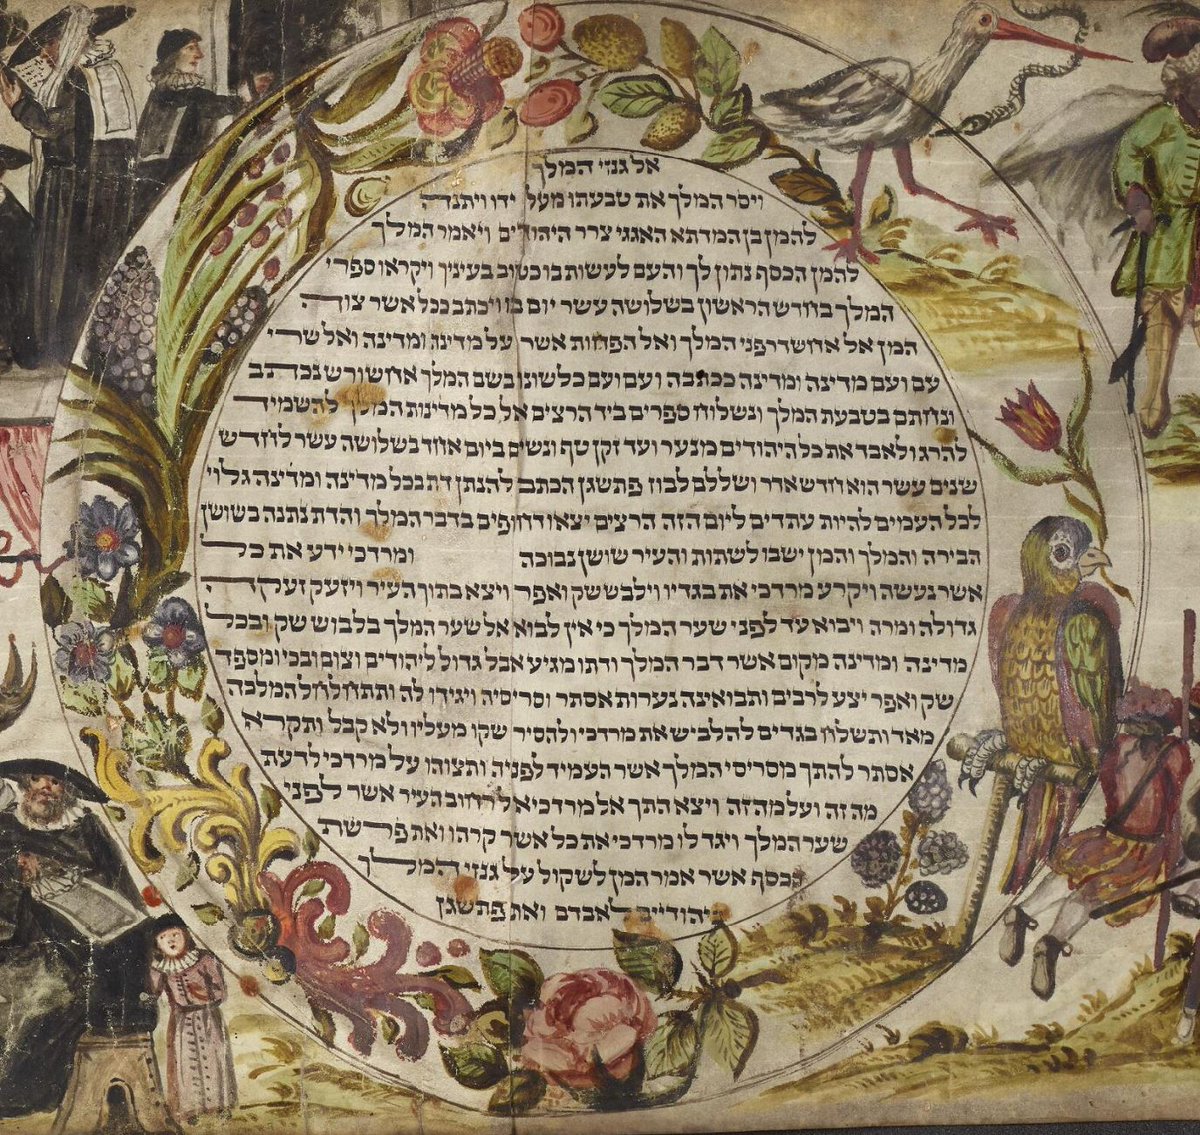 אל גנזי המלך
ויסר המלך את טבעתו מעל ידו ויתנה
להמן בן המדתא האגגי צרר היהודים ויאמר המלך
להמן הכסף נתון לך והעם לעשות בו כטוב בעיניך ויקראו ספרי
המלך בחדש הראשון בשלושה עשר יום בו ויכתב ככל אשר צוה
המן אל אחשדרפני המלך ואל הפחות אשר על מדינה ומדינה ואל שרי
עם ועם מדינה ומדינה ככתבה ועם ועם כלשונו בשם המלך אחשורש נכתב
ונחתם בטבעת המלך ונשלוח ספרים ביד הרצים אל כל מדינות המלך להשמיד
להרג ולאבד את כל היהודים מנער ועד זקן טף ונשים ביום אחד בשלושה עשר לחדש
שנים עשר הוא חדש אדר ושללם לבוז פתשגן הכתב להנתן דת בכל מדינה ומדינה גלוי
לכל העמים להיות עתדים ליום הזה הרצים יצאו דחופים בדבר המלך והדת נתנה בשושן
הבירה והמלך והמן ישבו לשתות והעיר שושן נבוכה ומרדכי ידע את כל
אשר נעשה ויקרע מרדכי את בגדיו וילבש שק ואפר ויצא בתוך העיר ויזעק זעקה
גדולה ומרה ויבוא עד לפני שער המלך כי אין לבוא אל שער המלך בלבוש שק ובכל
מדינה ומדינה מקום אשר דבר המלך ודתו מגיע אבל גדול ליהודים וצום ובכי ומספד
שק ואפר יצע לרבים ותבואינה נערות אסתר וסריסיה ויגידו לה ותתחלחל המלכה
מאד ותשלח בגדים להלביש את מרדכי ולהסיר שקו מעליו ולא קבל ותקרא
אסתר להתך מסריסי המלך אשר העמיד לפניה ותצוהו על מרדכי לדעת
מה זה ועל מה זה ויצא התך אל מרדכי אל רחוב העיר אשר לפני
שער המלך ויגד לו מרדכי את כל אשר קרהו ואת פרשת
הכסף אשר אמר המן לשקול על גנזי המלך
ביהודיים לאבדם ואת פתשגן